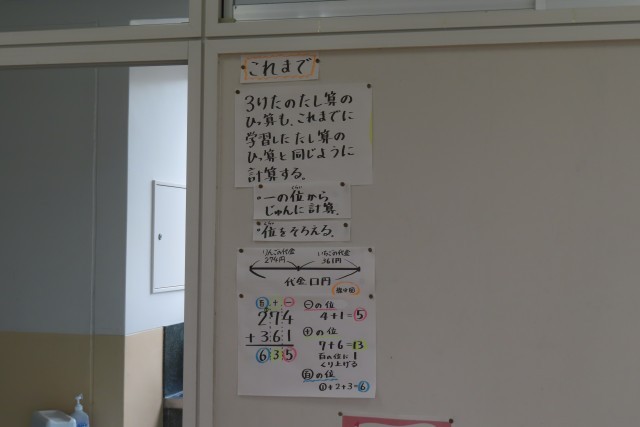 これまで
3けたのたし算の
ひっ算も、これまでに
学習したたし算の
ひっ算と同じように
計算する。
・一の位から
じゅんに計算。
・位をそろえる。
りんごの代金 いちごの代金
274円 361円
代金 □円
百 十 一
274
+361
635
一の位
4+1=5
十の位
7+6=13
百の位に1
くり上げる
百の位
①+2+3=6